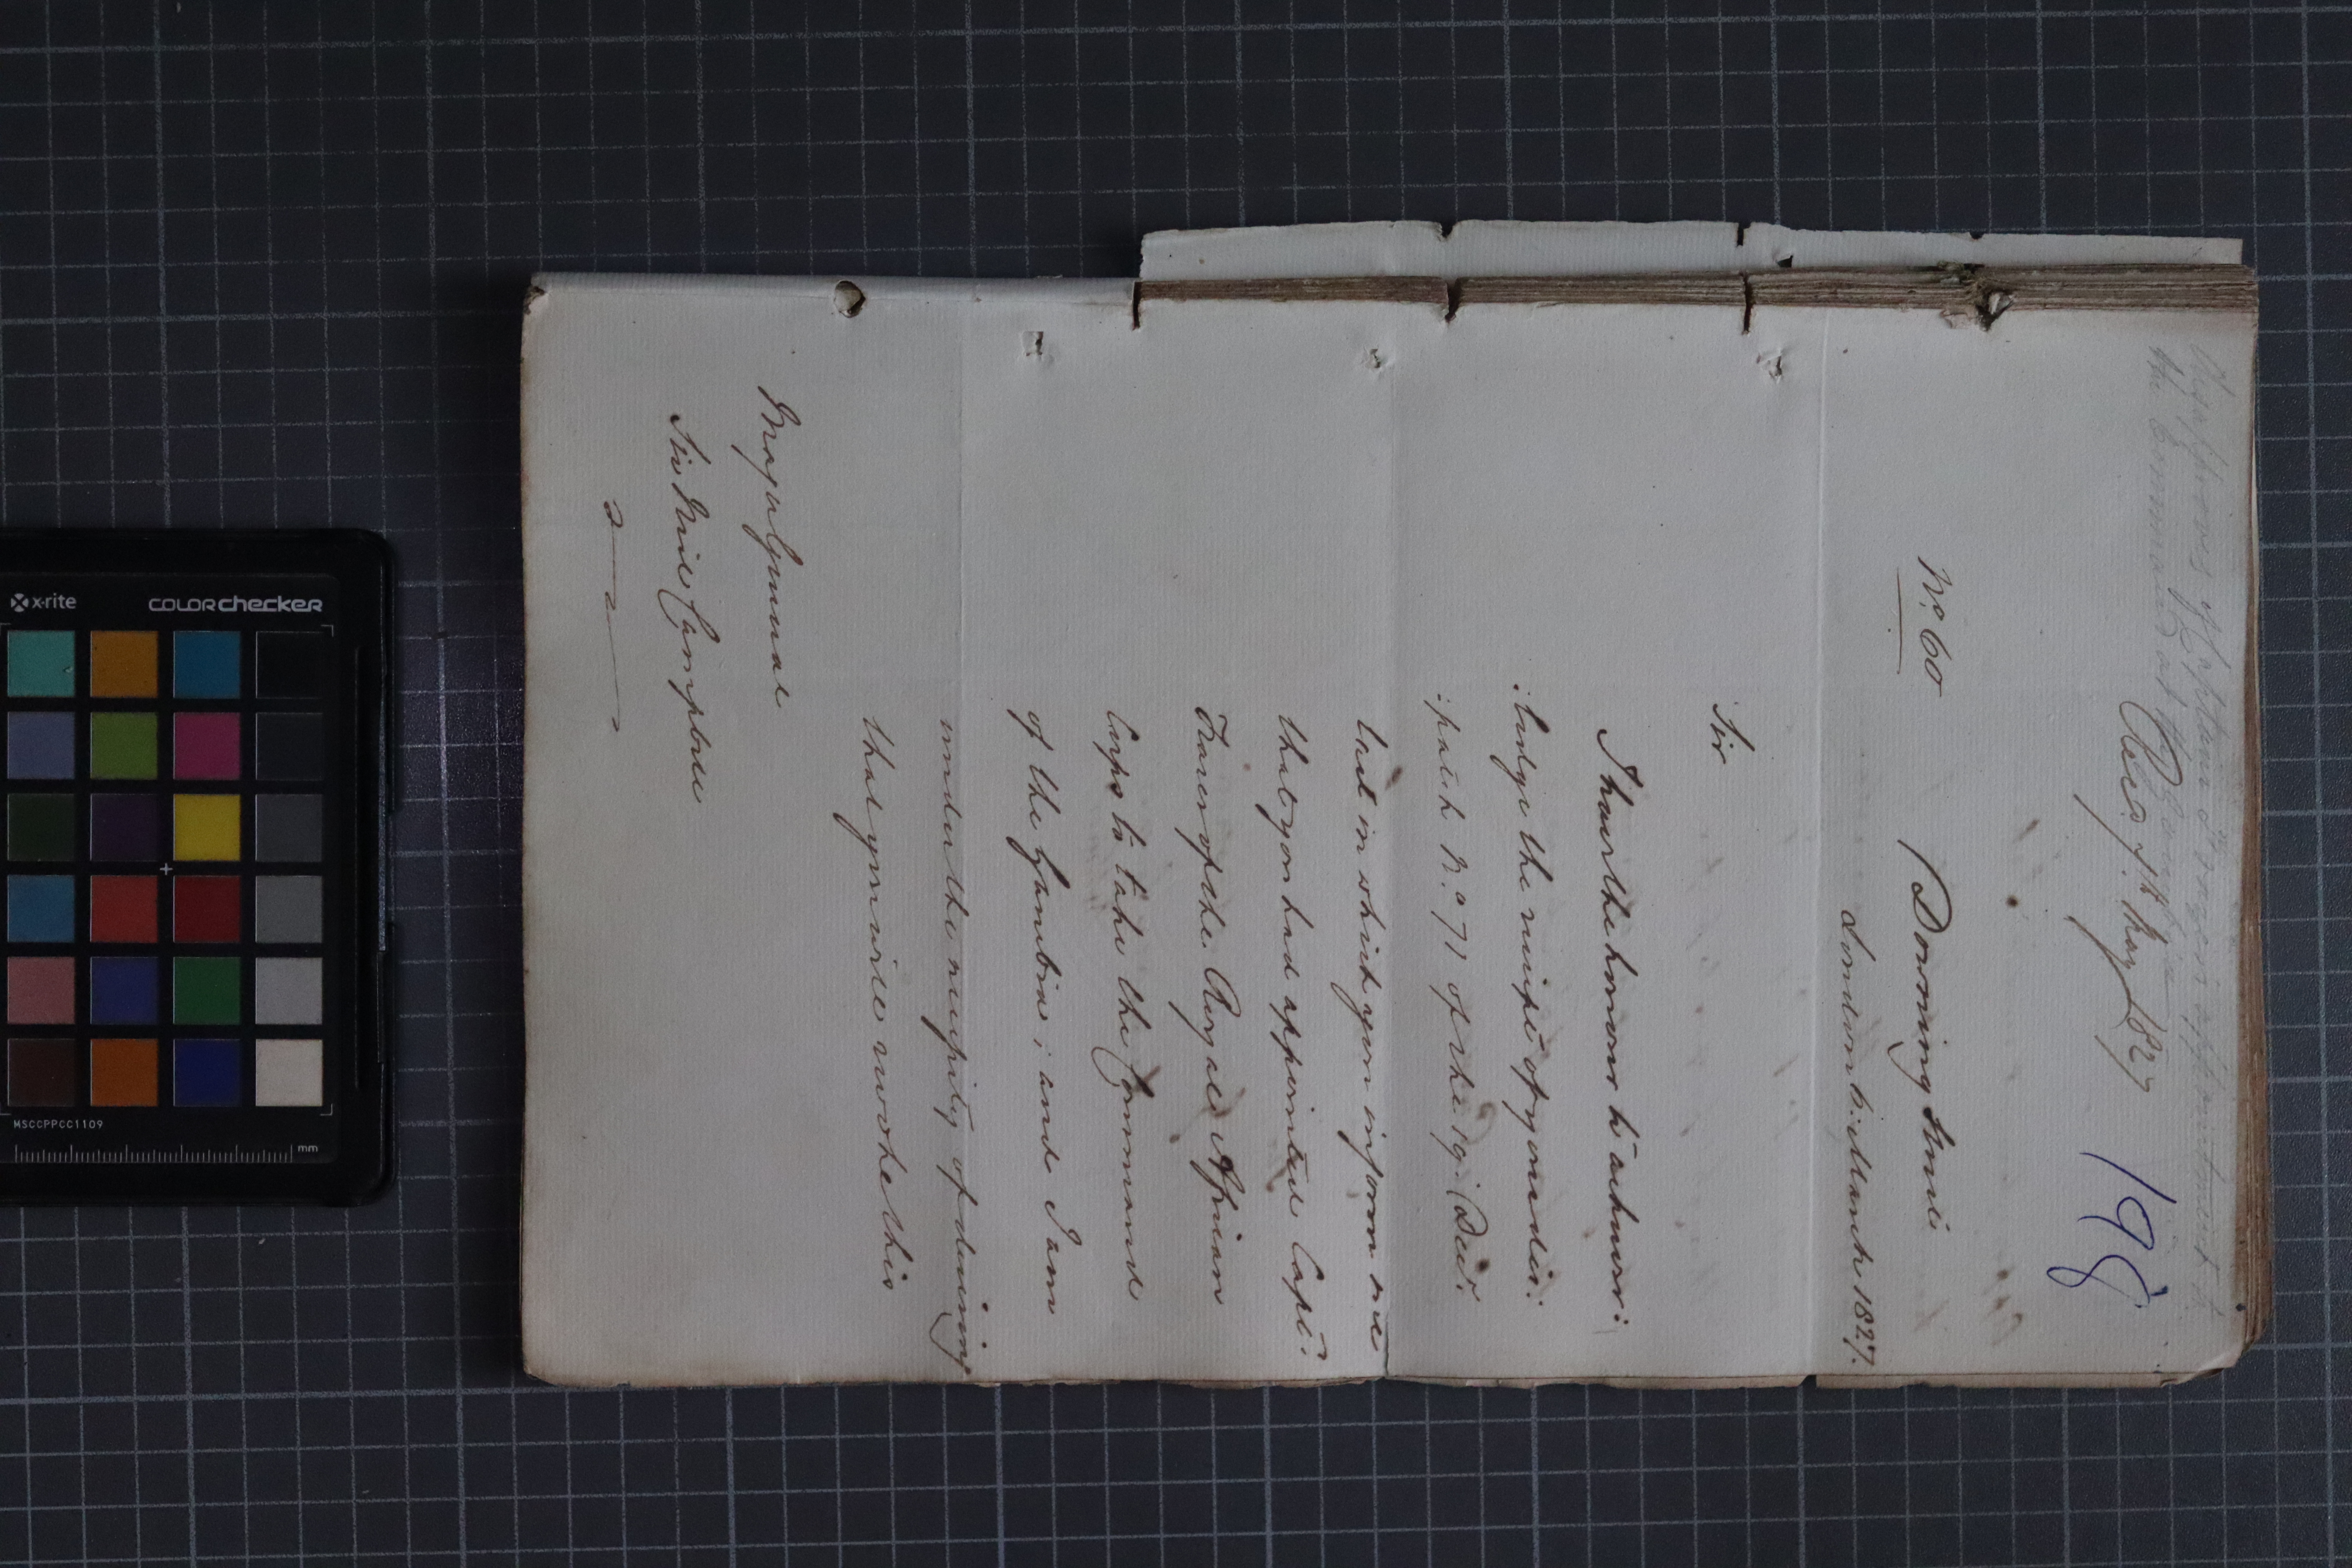 Disapproves of Captain Fraser's appointment to
the Command at the Gambia
Rec.d 7th May 1827
198
No. 60
Downing Street
London 6. March 1827.
Sir
I have the honour to acknow:
:ledge the receipt of your des:
:patch No. 71 of the 19. Decr.
last in which you inform me
that you had appointed Capt.
Fraser of the Royal African
Corps to take the Command
of the Gambia; and I am
under the necessity of desiring
that you will revoke this
Major General
Sir Neil Campbell
x-rite
colorchecker
MSCCPPCC1109
mm